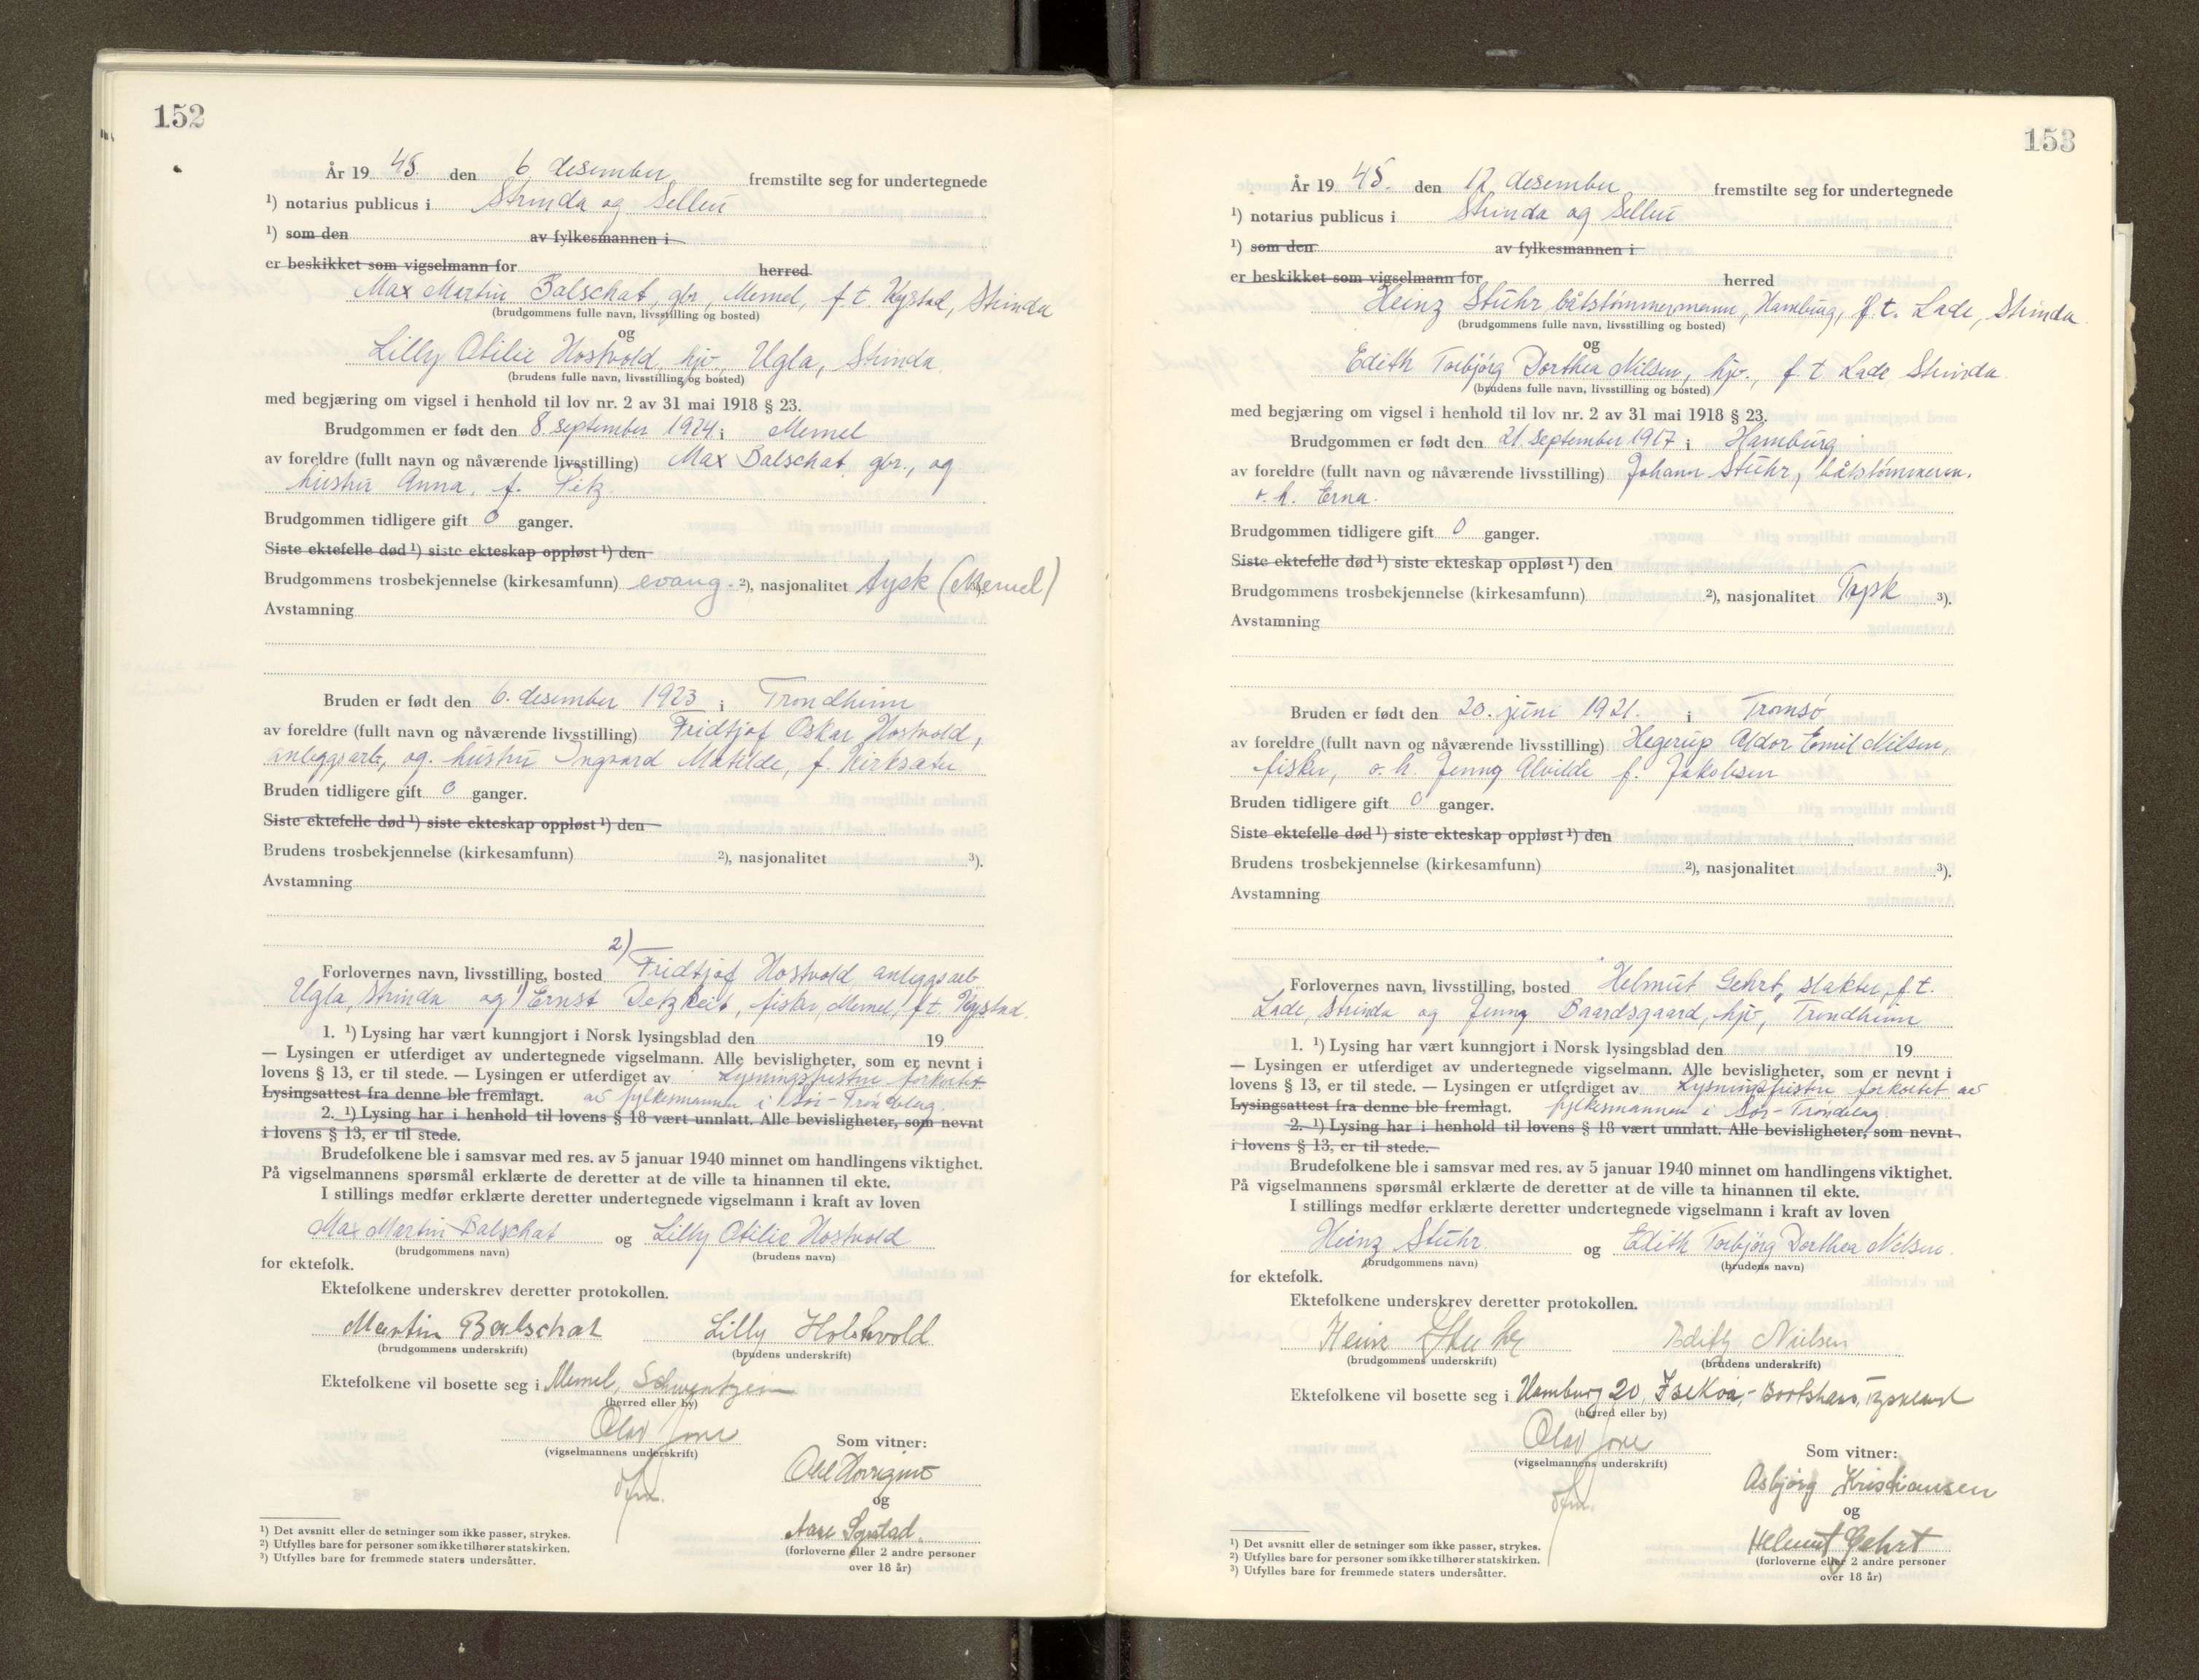 152
År 19 45. den 6. desember fremstilte seg for undertegnede
¹) notarius publicus i Strinda og Selbu
¹) som den av fylkesmannen i
er beskikket som vigselmann for herred
Max Martin Balschat, gbr., Memel, f. t. Kystad, Strinda
(brudgommens fulle navn, livsstilling og bosted)
og
Lilly Otilie Hostvold, hjv., Ugla, Strinda.
(brudens fulle navn, livsstilling og bosted)
med begjæring om vigsel i henhold til lov nr. 2 av 31 mai 1918 § 23.
Brudgommen er født den 8. september 1924 i Memel
av foreldre (fullt navn og nåværende livsstilling) Max Balschat, gbr., og
hustru Anna, f. Pitz.
Brudgommen tidligere gift 0 ganger.
Siste ektefelle død ¹) siste ekteskap oppløst ¹) den
Brudgommens trosbekjennelse (kirkesamfunn) evang. ²), nasjonalitet tysk (Memel)
Avstamning
Bruden er født den 6. desember 1923 i Trondheim
av foreldre (fullt navn og nåværende livsstilling) Fridtjof Oskar Hostvold,
anleggsarb., og hustru Ingvard Matilde, f. Kirksæter
Bruden tidligere gift 0 ganger.
Siste ektefelle død ¹) siste ekteskap oppløst ¹) den
Brudens trosbekjennelse (kirkesamfunn) ²), nasjonalitet ³).
Avstamning
2)
Forlovernes navn, livsstilling, bosted Fridtjof Hostvold, anleggsarb.
Ugla, Strinda og 1) Ernst Detzkeit, fisker, Memel, f.t. Kystad.
1. ¹) Lysing har vært kunngjort i Norsk lysingsblad den 19
— Lysingen er utferdiget av undertegnede vigselmann. Alle bevisligheter, som er nevnt i
lovens § 13, er til stede. — Lysingen er utferdiget av Lysningsfristen forkortet
Lysingsattest fra denne ble fremlagt. av fylkesmannen i Sør-Trøndelag.
2. ¹) Lysing har i henhold til lovens § 18 vært unnlatt. Alle bevisligheter, som nevnt
i lovens § 13, er til stede.
Brudefolkene ble i samsvar med res. av 5 januar 1940 minnet om handlingens viktighet.
På vigselmannens spørsmål erklærte de deretter at de ville ta hinannen til ekte.
I stillings medfør erklærte deretter undertegnede vigselmann i kraft av loven
Max Martin Balschat og Lilly Otilie Hostvold
(brudgommens navn) (brudens navn)
for ektefolk.
Ektefolkene underskrev deretter protokollen.
Martin Balschat Lilly Holstvold
(brudgommens underskrift) (brudens underskrift)
Ektefolkene vil bosette seg i Memel,
(herred eller by)
Olav Jore
(vigselmannens underskrift)
Som vitner:
og
(forloverne eller 2 andre personer
over 18 år)
¹) Det avsnitt eller de setninger som ikke passer, strykes.
²) Utfylles bare for personer som ikke tilhører statskirken.
³) Utfylles bare for fremmede staters undersåtter.
153
År 19 45. den 12. desember fremstilte seg for undertegnede
¹) notarius publicus i Strinda og Selbu
¹) som den av fylkesmannen i
er beskikket som vigselmann for herred
Heinz Stuhr, båtstømmermann, Hamburg, f. t. Lade, Strinda
(brudgommens fulle navn, livsstilling og bosted)
og
Edith Torbjørg Dorthea Nilsen, hjv., f. t. Lade, Strinda
(brudens fulle navn, livsstilling og bosted)
med begjæring om vigsel i henhold til lov nr. 2 av 31 mai 1918 § 23.
Brudgommen er født den 21. september 1917 i Hamburg
av foreldre (fullt navn og nåværende livsstilling) Johann Stuhr, båtstømmerm.
o. h. Erna.
Brudgommen tidligere gift 0 ganger.
Siste ektefelle død ¹) siste ekteskap oppløst ¹) den
Brudgommens trosbekjennelse (kirkesamfunn) ²), nasjonalitet Tysk ³).
Avstamning
Bruden er født den 20. juni 1921. i Tromsø
av foreldre (fullt navn og nåværende livsstilling) Hegerup Aldor Emil Nilsen,
fisker, o. h. Jenny Alvilde f. Jakobsen
Bruden tidligere gift 0 ganger.
Siste ektefelle død ¹) siste ekteskap oppløst ¹) den
Brudens trosbekjennelse (kirkesamfunn) ²), nasjonalitet ³).
Avstamning
Forlovernes navn, livsstilling, bosted Helmut Gehrt, slakter, f. t.
Lade, Strinda og Jenny Baardsgaard, hjv., Trondheim
1. ¹) Lysing har vært kunngjort i Norsk lysingsblad den 19
— Lysingen er utferdiget av undertegnede vigselmann. Alle bevisligheter, som er nevnt i
lovens § 13, er til stede. — Lysingen er utferdiget av Lysningsfristen forkortet av
Lysingsattest fra denne ble fremlagt. fylkesmannen i Sør-Trøndelag
2. ¹) Lysing har i henhold til lovens § 18 vært unnlatt. Alle bevisligheter, som nevnt
i lovens § 13, er til stede.
Brudefolkene ble i samsvar med res. av 5 januar 1940 minnet om handlingens viktighet.
På vigselmannens spørsmål erklærte de deretter at de ville ta hinannen til ekte.
I stillings medfør erklærte deretter undertegnede vigselmann i kraft av loven
Heinz Stuhr. og Edith Torbjørg Dorthea Nilsen.
(brudgommens navn) (brudens navn)
for ektefolk.
Ektefolkene underskrev deretter protokollen.
Heinz Stuhr Edith Nielsen
(brudgommens underskrift) (brudens underskrift)
Ektefolkene vil bosette seg i Hamburg 20,
(herred eller by)
Olav Jore
(vigselmannens underskrift)
Som vitner:
Asbjørg Kristiansen
og
Helmut Gehrt
(forloverne eller 2 andre personer
over 18 år)
¹) Det avsnitt eller de setninger som ikke passer, strykes.
²) Utfylles bare for personer som ikke tilhører statskirken.
³) Utfylles bare for fremmede staters undersåtter.